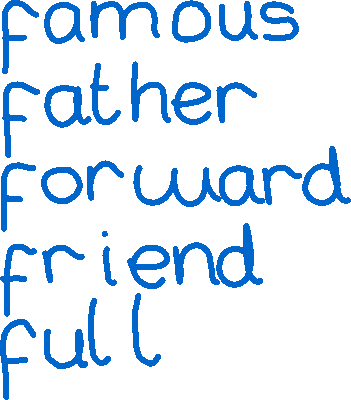 famous
father
forward
friend
full